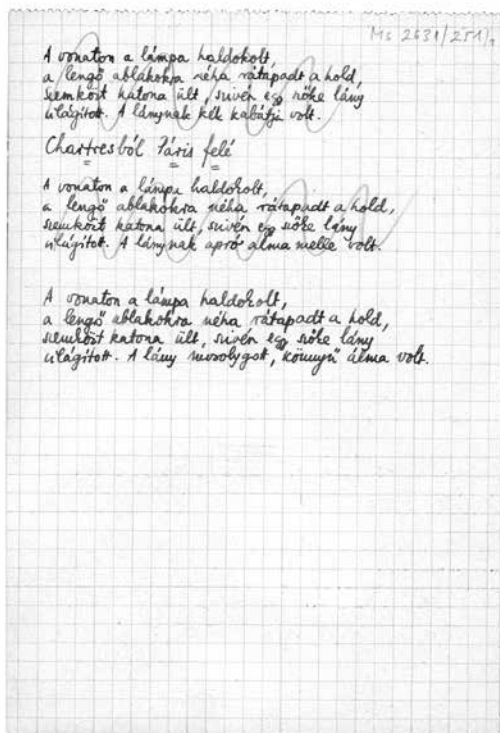 Ms 2631/251/1.
A vonaton a lámpa haldokolt,
a lengő ablakokra néha rátapadt a hold,
szemközt katona ült, szivén egy szőke lány
világított. A lánynak kék kabátja volt.
Chartresból Páris felé
A vonaton a lámpa haldokolt,
a lengő ablakokra néha rátapadt a hold,
szemközt katona ült, szivén egy szőke lány
világított. A lánynak apró alma melle volt.
A vonaton a lámpa haldokolt,
a lengő ablakokra néha rátapadt a hold,
szemközt katona ült, szivén egy szőke lány
világított. A lány mosolygott, könnyű álma volt.